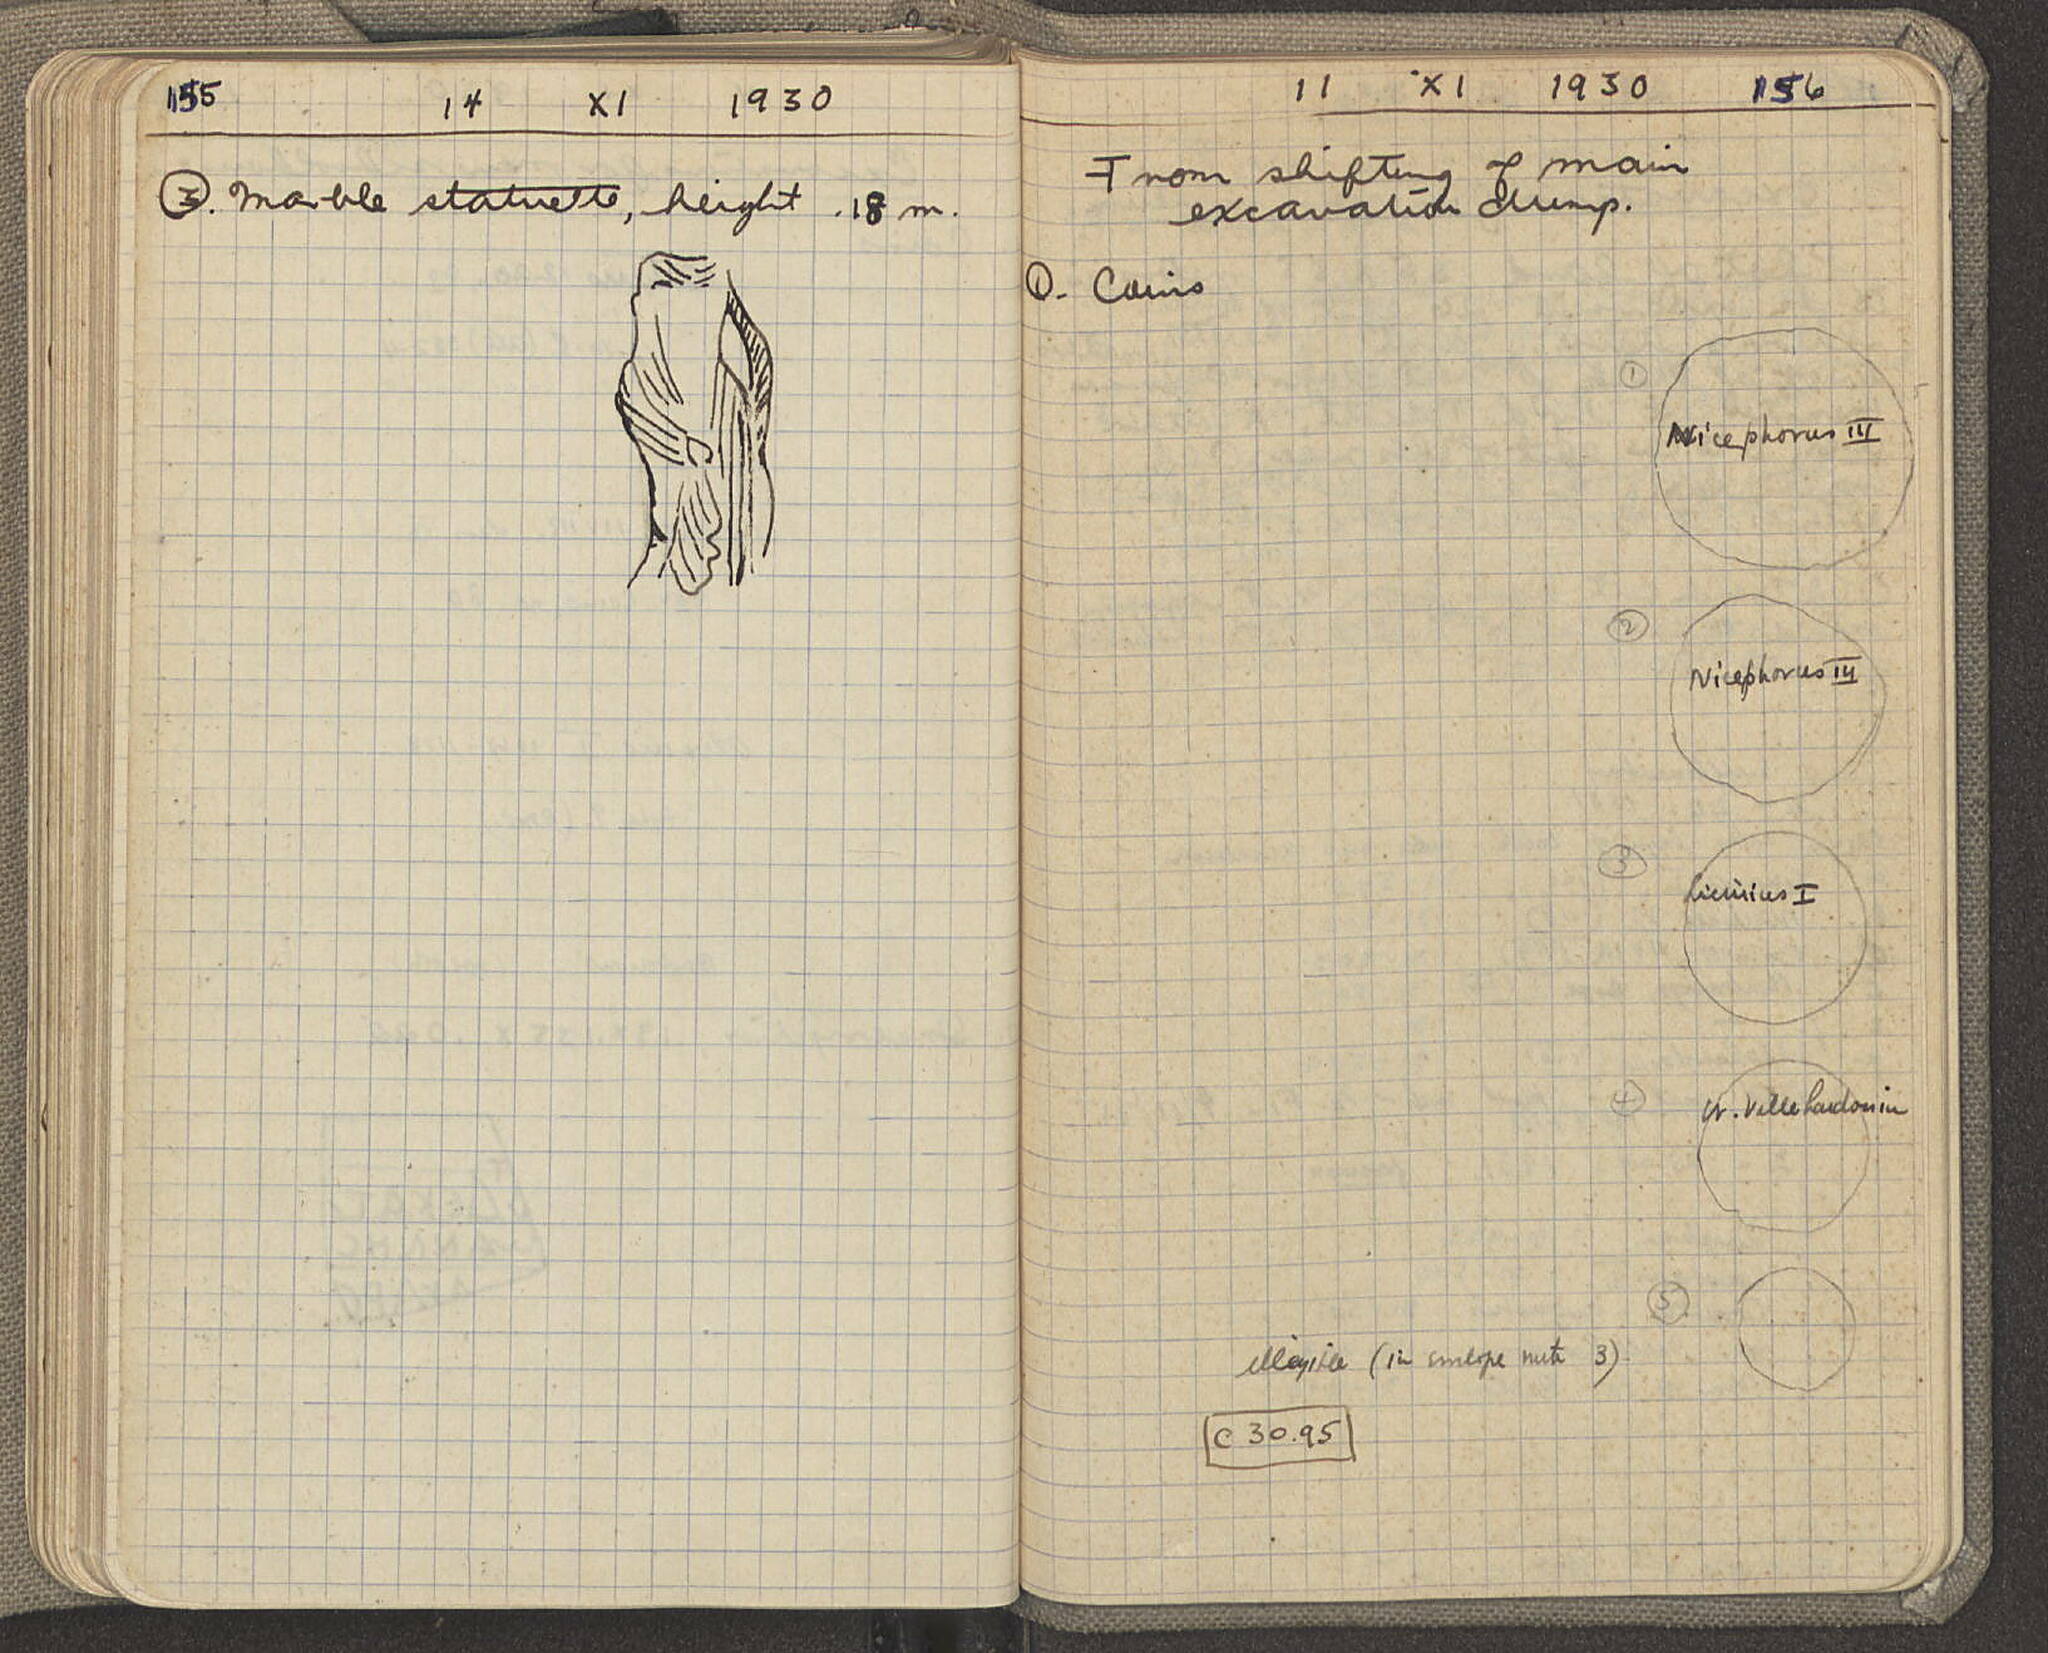 155 14 XI 1930
3. Marble statuette, height .18 m.
11 XI 1930 156
From shifting of main
excavation dump.
1. Coins
1
Nicephorus III
2
Nicephorus III
3
Licinius I
4
W. Villehardouin
5
illegible (in envelope with 3)
C 30.95